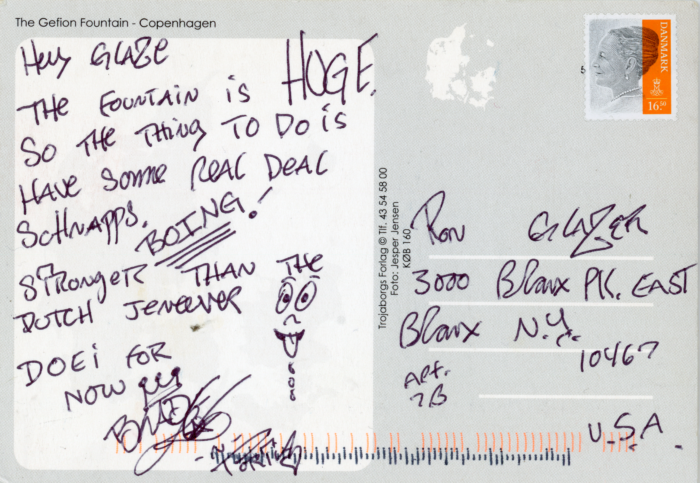 The Gefion Fountain - Copenhagen
Hey GLAZE
THE FOUNTAIN is HUGE.
SO THE THING TO DO is
HAVE SOME REAL DEAL
SCHNAPPS.
BOING!
STRONGER THAN THE
DUTCH JENEEVER
DOEI FOR
NOW !!!
DANMARK
16.50
Trojaborgs Forlag © Tlf. 43 54 58 00
Foto: Jesper Jensen
KØB 160
RON GLAZER
3000 BRONX PK. EAST
BRONX N.Y.
10467
APT.
7B
U.S.A.